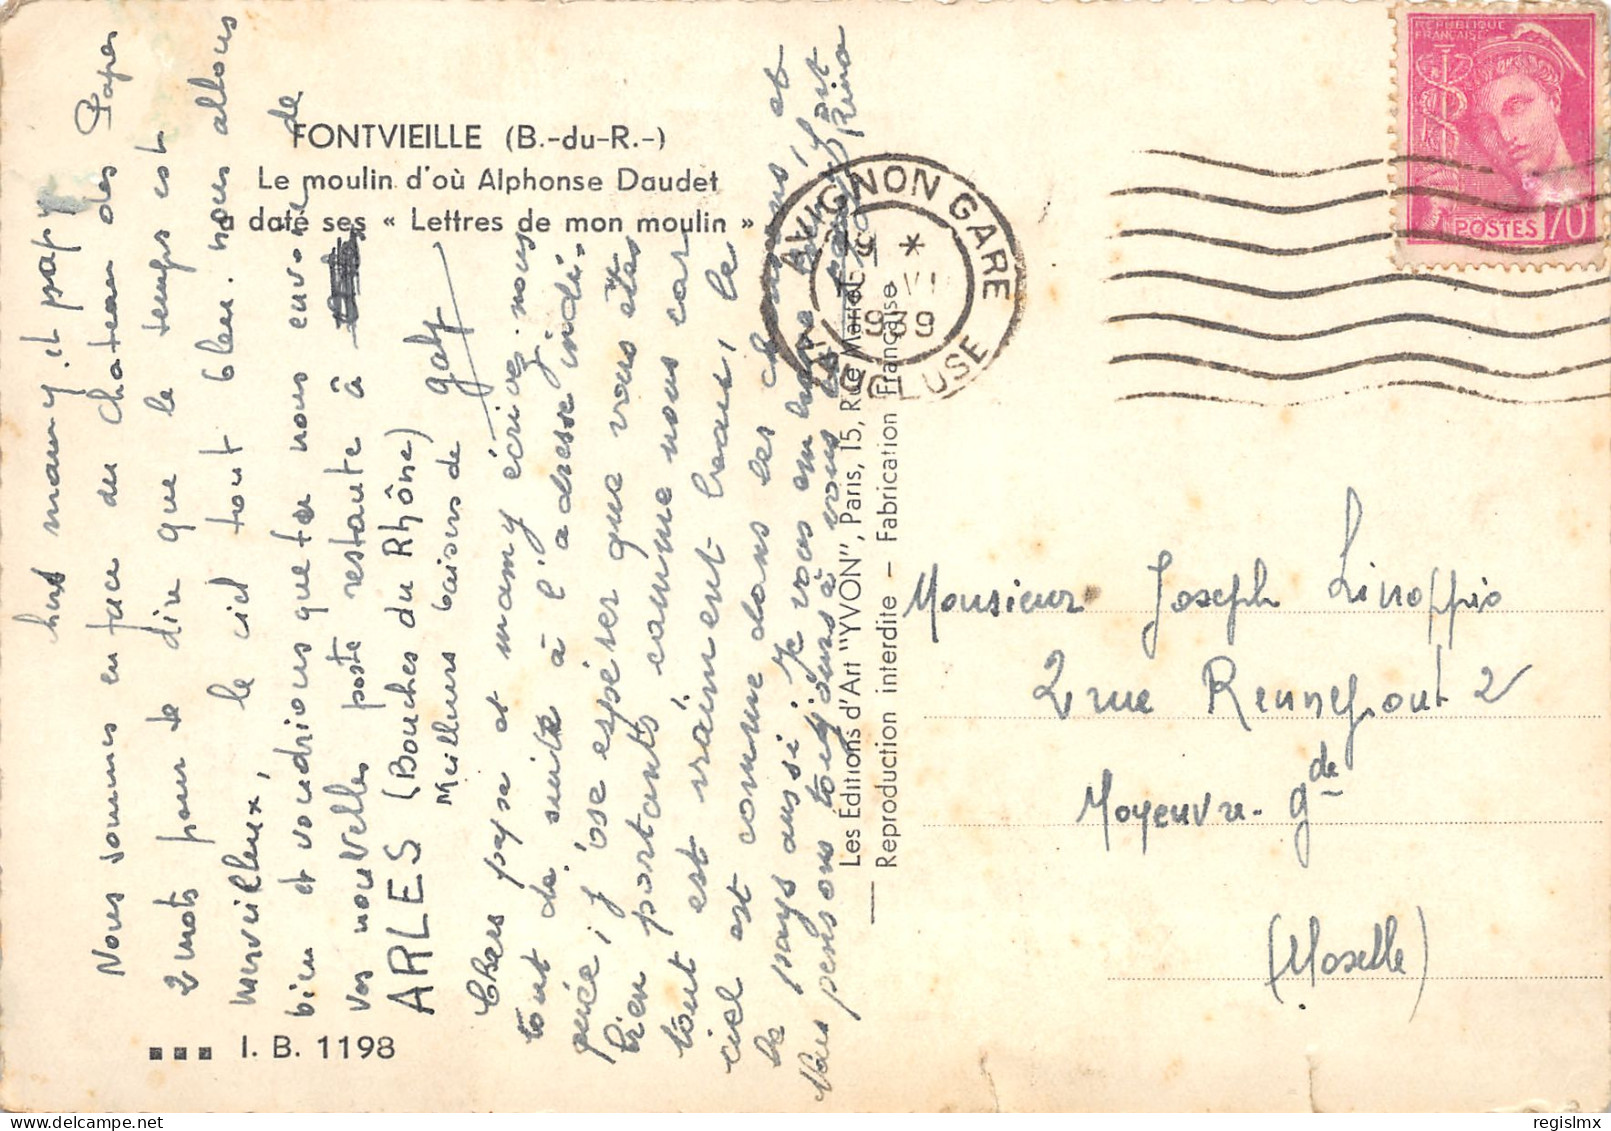 FONTVIEILLE (B.-du-R.-)
Le moulin d'où Alphonse Daudet
a daté ses « Lettres de mon moulin »
mamy et papy
Nous sommes en face du chateau des Papes
2 mots pour te dire que le temps est
merveilleux, le ciel tout bleu. nous allons
bien et voudrions que tu nous envoie de
vos nouvelles poste restante à
ARLES (Bouches du Rhône)
Meilleurs baisers de gaby
Chers papa et mamy écrivez nous
tout de suite à l'adresse indi-
quée; j'ose espérer que vous êtes
bien portants comme nous car
tout est vraiment beau, le
ciel est comme dans les chansons, et
le pays aussi; Je vous embrasse bien fort
Nous pensons toujours à vous Rina
■ ■ ■ I. B. 1198
Les Éditions d'Art "YVON", Paris, 15, Rue Martel
Reproduction interdite – Fabrication Française
AVIGNON GARE
VAUCLUSE
REPUBLIQUE
FRANÇAISE
POSTES 70
Monsieur Joseph Linoppio
2 rue Rennepont 2
Moyeuvre-gde
(Moselle)
regislmx